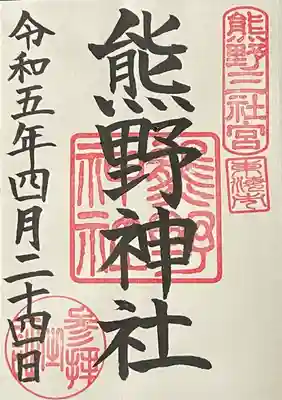 熊野三社宮
熊野神社
熊野神社
令和五年四月二十四日
参拝